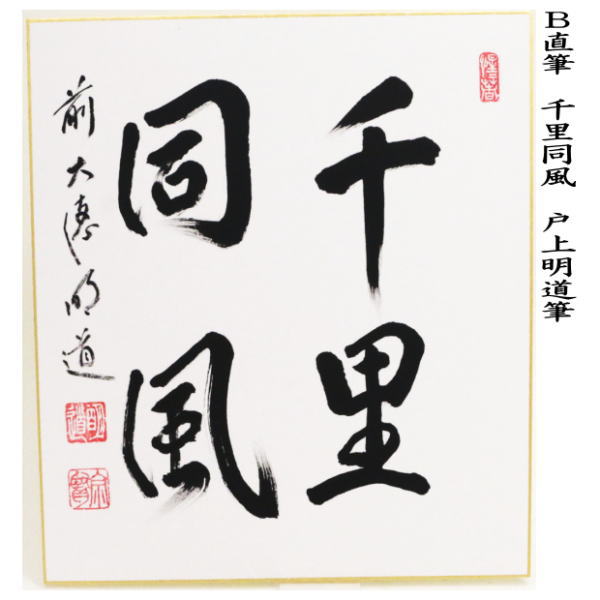 B直筆 千里同風 戸上明道筆
千里
同風
前大徳明道
明道